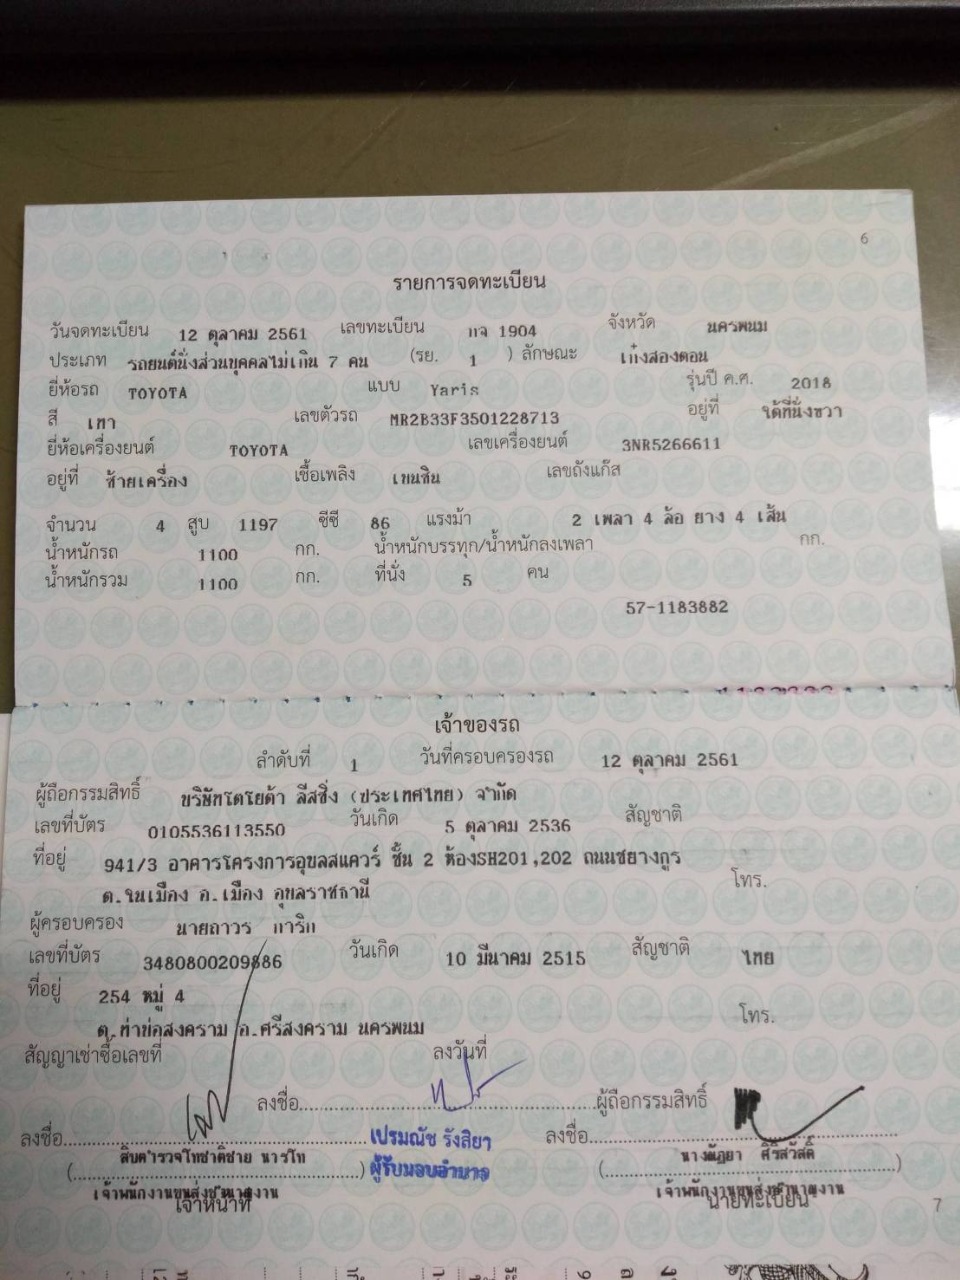 6
รายการจดทะเบียน
วันจดทะเบียน 12 ตุลาคม 2561 เลขทะเบียน กจ 1904 จังหวัด นครพนม
ประเภท รถยนต์นั่งส่วนบุคคลไม่เกิน 7 คน (รย. 1 ) ลักษณะ เก๋งสองตอน
ยี่ห้อรถ TOYOTA แบบ Yaris รุ่นปี ค.ศ. 2018
สี เทา เลขตัวรถ MR2B33F3501228713 อยู่ที่ ใต้ที่นั่งขวา
ยี่ห้อเครื่องยนต์ TOYOTA เลขเครื่องยนต์ 3NR5266611
อยู่ที่ ซ้ายเครื่อง เชื้อเพลิง เบนซิน เลขถังแก๊ส
จำนวน 4 สูบ 1197 ซีซี 86 แรงม้า 2 เพลา 4 ล้อ ยาง 4 เส้น
น้ำหนักรถ 1100 กก. น้ำหนักบรรทุก/น้ำหนักลงเพลา กก.
น้ำหนักรวม 1100 กก. ที่นั่ง 5 คน
57-1183882
เจ้าของรถ
ลำดับที่ 1 วันที่ครอบครองรถ 12 ตุลาคม 2561
ผู้ถือกรรมสิทธิ์ บริษัทโตโยต้า ลีสซิ่ง (ประเทศไทย) จำกัด
เลขที่บัตร 0105536113550 วันเกิด 5 ตุลาคม 2536 สัญชาติ
ที่อยู่ 941/3 อาคารโครงการอุบลสแควร์ ชั้น 2 ห้องSH201,202 ถนนชยางกูร
ต.ในเมือง อ.เมือง อุบลราชธานี โทร.
ผู้ครอบครอง นายถาวร การิก
เลขที่บัตร 3480800209886 วันเกิด 10 มีนาคม 2515 สัญชาติ ไทย
ที่อยู่ 254 หมู่ 4
ต.ท่าบ่อสงคราม อ.ศรีสงคราม นครพนม โทร.
สัญญาเช่าซื้อเลขที่ ลงวันที่
ลงชื่อ ผู้ถือกรรมสิทธิ์
ลงชื่อ เปรมณัช รังสิยา ลงชื่อ
สิบตำรวจโทชาติชาย นารโท ผู้รับมอบอำนาจ นางณัฏยา ศิริสวัสดิ์
เจ้าพนักงานขนส่งชำนาญงาน เจ้าพนักงานขนส่งชำนาญงาน
เจ้าหน้าที่ นายทะเบียน 7